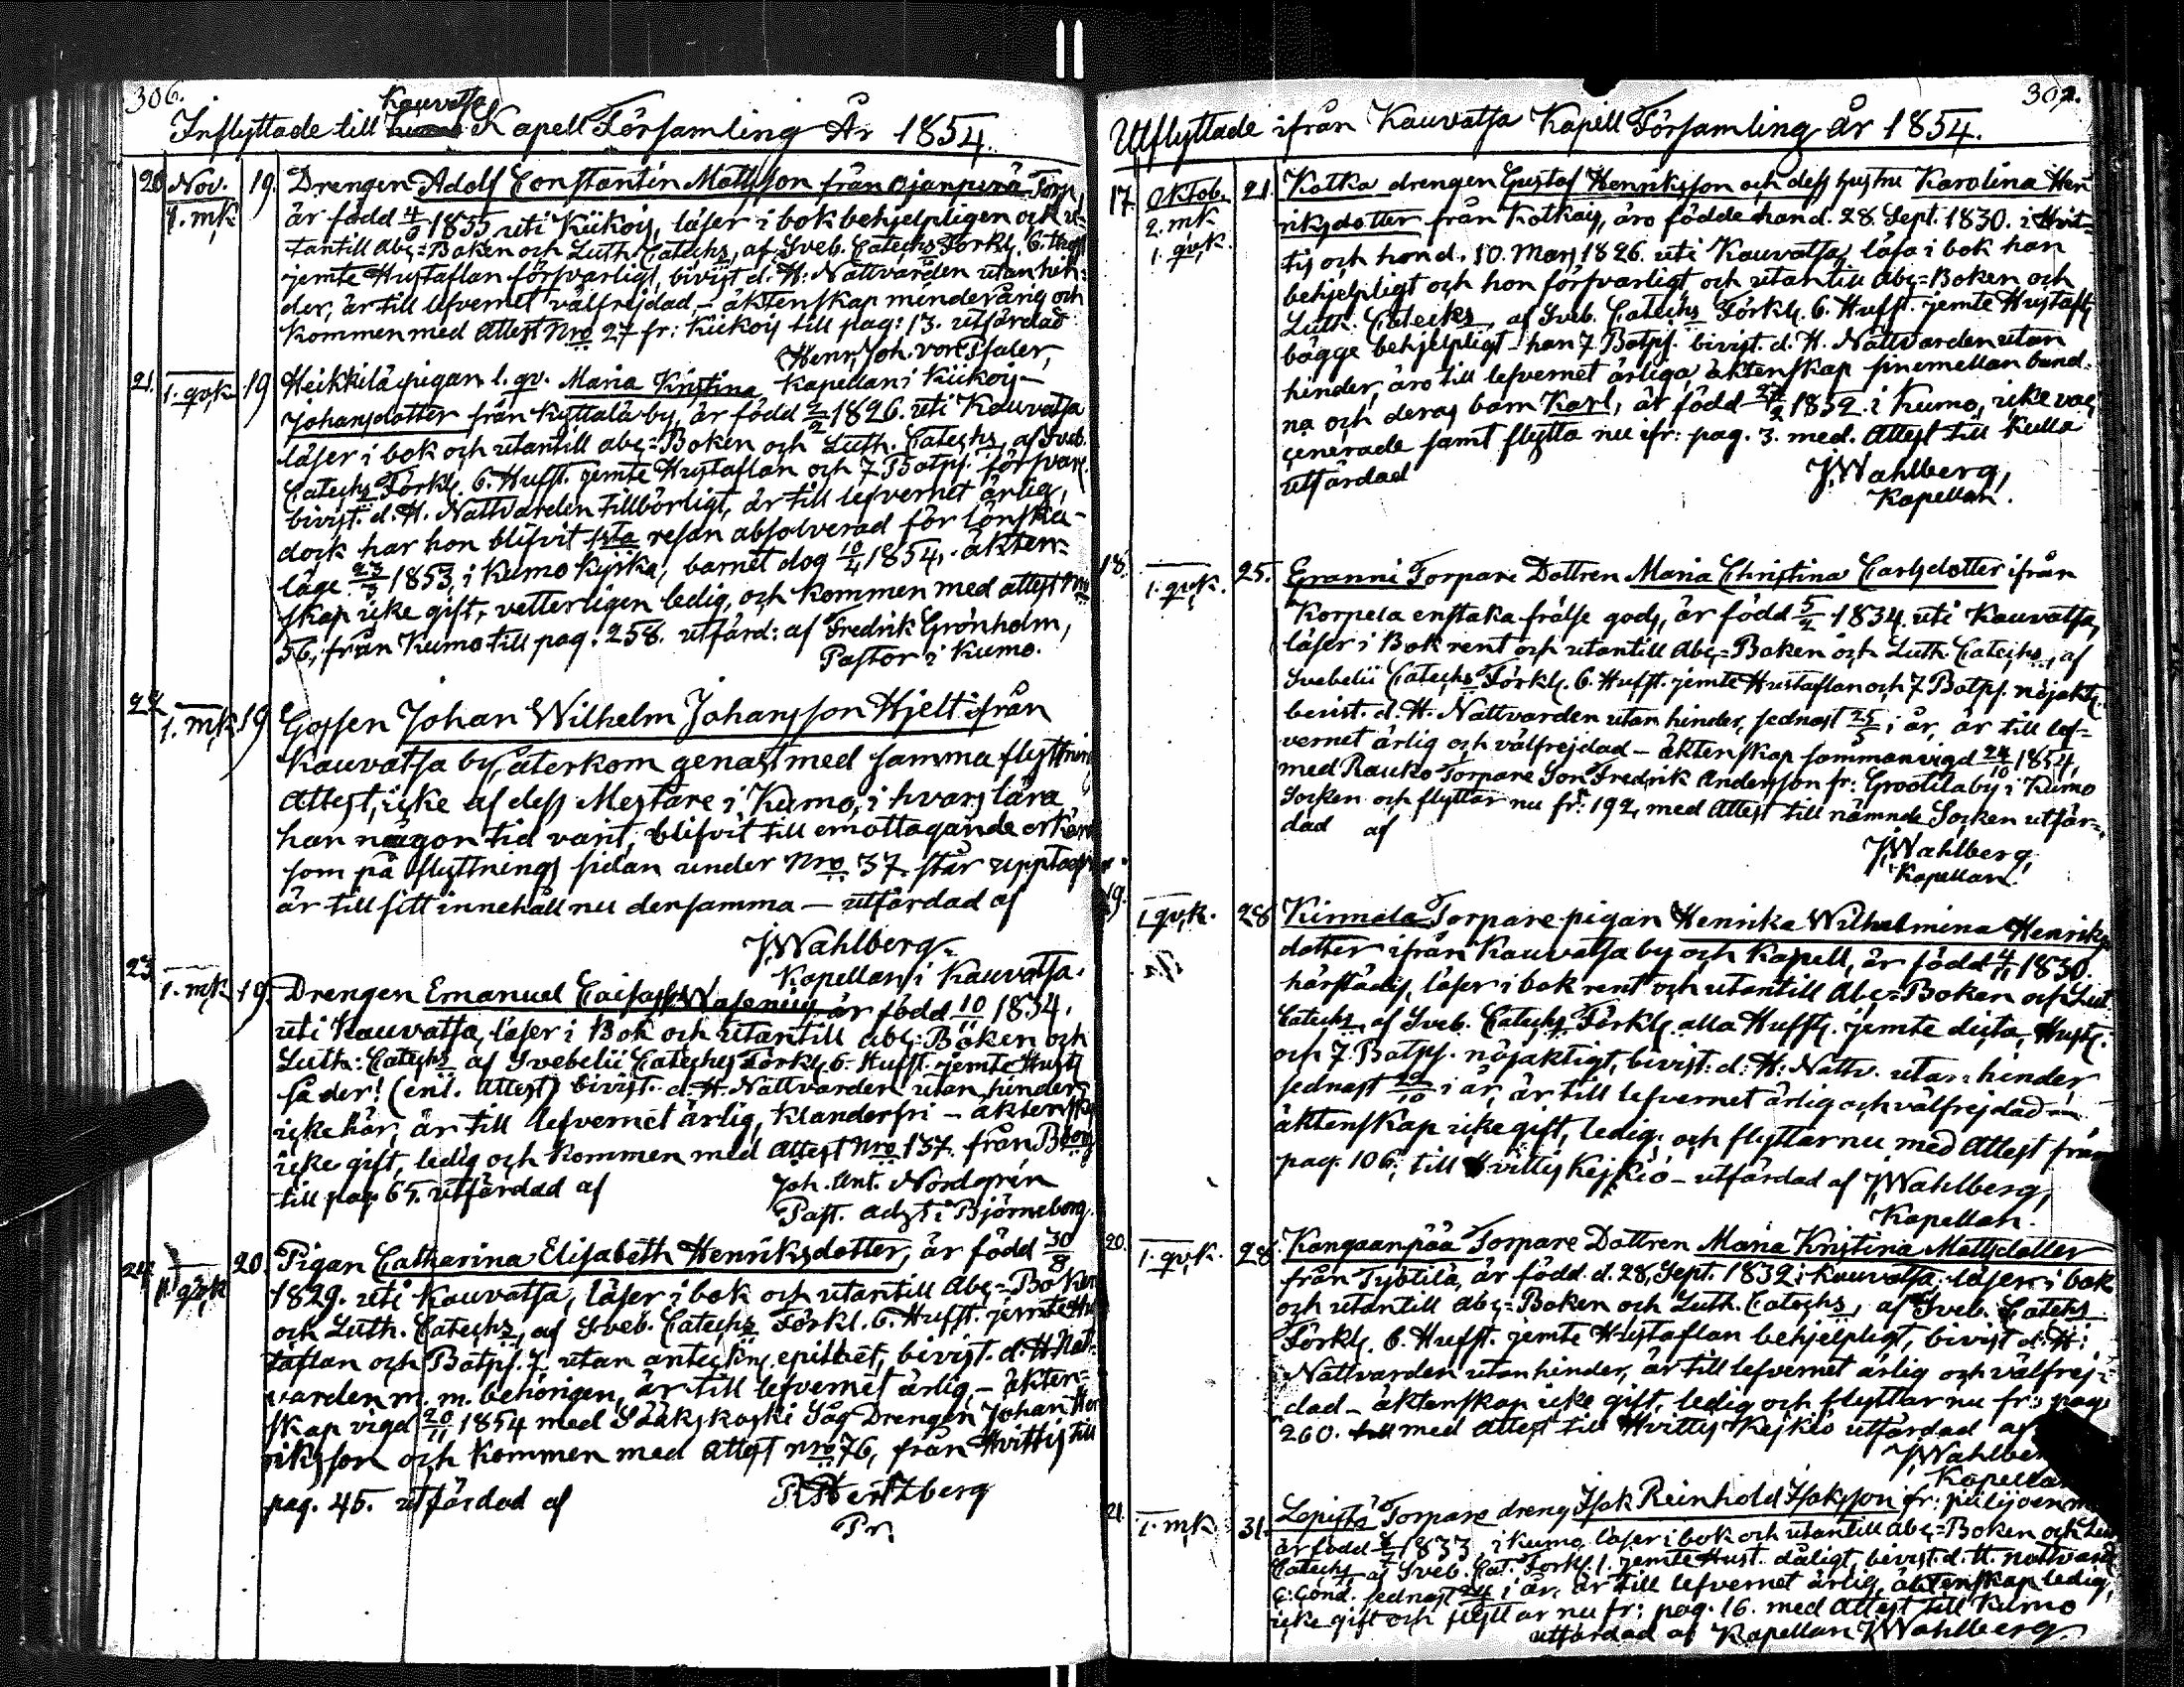 306.
Kauvatsa
Inflyttade till Kapell Församling År 1854.
20 Nov. 19. Drengen Adolf Constantin Mattsson från Ojanperä Torp,
1. mk är född 4/9 1835 uti Kiikois, läser i bok behjelpligen och u-
tantill abc=Boken och Luth. Catechs, af Sveb. Catechs Förkl. 6. Hufft
jemte Hustaflan försvarligt, bivist d. H. Nattvarden utan hin=
der, är till lefvernet välfrejdad – äktenskap minderårig och
kommen med Attest Nro 27 fr: Kiikois till pag: 13. utfärdad
Henr. Joh. von Pfaler,
21. 1. qvk 19 Heikkilä pigan l. qv. Maria Kristina Kapellan i Kiikois –
Johansdotter från Kyttälä by, är född 2/2 1826. uti Kauvatsa
läser i bok och utantill abc=Boken och Luth. Catechs, af Sveb.
Catechs Förkl. 6. Hufft. jemte Hustaflan och 7 Botps. försvarl.
bivist. d. H. Nattvarden tillbörligt, är till lefvernet ärlig,
dock har hon blifvit 1sta resan absolverad för lönska-
läge 23/3 1853 i Kumo Kyrka, barnet dog 10/4 1854, äkten=
skap icke gift, vetterligen ledig, och kommen med attest Nro
56, från Kumo till pag: 258. utfärd: af Fredrik Grönholm,
Pastor i Kumo.
22. 1. mk 19 Gossen Johan Wilhelm Johansson Hjelt ifrån
Kauvatsa by, återkom genast med samma flyttnings
Attest, icke af dess Mestare i Kumo, i hvars lära
han någon tid varit, blifvit till emottagande erkänd
som på flyttnings sidan under Nro 37. står upptagen
är till sitt innehåll nu densamma — utfärdad af
J Wahlberg
Kapellan i Kauvatsa.
23. 1. mk 19. Drengen Emanuel Wasenius är född 10/11 1834.
uti Kauvatsa, läser i Bok och utantill abc=Boken och
Luth: Catechs af Svebelii Catechs Förkl. 6. Hufft. jemte Hustfl
så der! (enl. Attest) bivist. d. H. Nattvarden utan hinder,
icke här, är till lefvernet ärlig, klanderfri – äktenskap
icke gift, ledig och kommen med Attest Nro 137. från Bborg
till pag 65. utfärdad af Joh. Ant. Nordgrén
Past. adjt i Björneborg.
24. 1 qvk 20. Pigan Catharina Elisabeth Henriksdotter, är född 30/8
1829. uti Kauvatsa, läser i bok och utantill Abc=Boken
och Luth. Catechs, af Sveb. Catechs Förkl. 6. Hufft. jemte Hu
taflan och Botps. 7 utan epithet, bivist. d. H. Natt-
varden m. m. behörigen, är till lefvernet ärlig – äkten=
skap vigd 20/11 1854 med Sääkskoski Såg Drengen Johan Hen
riksson och kommen med Attest Nro 76, från Hvittis till
pag. 45. utfärdad af R Hertzberg
Pr.
Utflyttade ifrån Kauvatsa Kapell Församling år 1854.
17. Oktob. 21. Katka drengen Gustaf Henriksson och dess hustru Karolina Hen
2. mk riksdotter från Kotkais, äro födde han d. 28. Sept. 1830. i Hvit=
1. qvk. tis och hon d. 10. Mars 1826. uti Kauvatsa, läsa i bok han
behjelpligt och hon försvarligt och utantill Abc=Boken och
Luth. Catechs, af Sveb. Catechs Förkl. 6. Hufft. jemte Hustafl
bägge behjelpligt – han 7 Botps. bivist. d. H. Nattvarden utan
hinder, äro till lefvernet ärliga, äktenskap sinemellan bund=
na och deras barn Karl, är född 1852. i Kumo, icke vac
cinerade samt flytta nu ifr: pag. 3. med. Attest till Kulla
utfärdad J Wahlberg,
Kapellan.
18. 1. qvk. 25. Granni Torpare Dottren Maria Christina Carlsdotter ifrån
Korpela enstaka frälse gods, är född 5/2 1834 uti Kauvatsa,
läser i Bok rent och utantill Abc=Boken och Luth. Catechs, af
Svebelii Catechs Förkl. 6. Hufft. jemte Hustaflan och 7 Botps. nöjaktl.
bevist. d. H. Nattvarden utan hinder, sednast 25/5 i år, är till lef=
vernet ärlig och välfrejdad – äktenskap sammanvigd 24/10 1854,
med Rauko Torpare Son Fredrik Andersson fr: Grootila by i Kumo
Socken och flyttar nu fr: 192, med Attest till nämnde Socken utfär=
dad af J Wahlberg,
Kapellan.
19. 1 qvk. 28 Kinnala Torpare pigan Henrika Wilhelmina Henriks
dotter ifrån Kauvatsa by och Kapell, är född 4/11 1830.
härstädes, läser i bok rent och utantill Abc=Boken och Lut
Catechs, af Sveb. Catechs Förkl. alla Hufft. jemte dicta, Hustf.
och 7. Botps. nöjaktigt, bivist: d: H: Nattv. utan hinder,
sednast i år, är till lefvernet ärlig och välfrejdad –
äktenskap icke gift, ledig, och flyttar nu med Attest från
pag. 106, till Hvittis Kejkiö – utfärdad af J Wahlberg,
Kapellan.
20. 1. qvk. 28. Kangaanpää Torpare Dottren Maria Kristina Mattsdotter
från Työtilä, är född d. 28, Sept. 1832 i Kauvatsa: läser i bok
och utantill Abc=Boken och Luth. Catechs, af Sveb. Catechs
Förkl. 6. Hufft. jemte Hustaflan behjelpligt, bivist d: H:
Nattvarden utan hinder, är till lefvernet ärlig och välfrej=
dad – äktenskap icke gift, ledig och flyttar nu fr: pag
260. med Attest till Hvittis Kejkiö utfärdad af
J Wahlberg
Kapellan
21. 1. mk 31. Lepistö Torpare dreng Isak Reinhold Isaksson fr:
är född 1833 i Kumo, läser i bok och utantill Abc=Boken och Lut
Catechs, af Sveb. Cat. Förkl. 1. jemte Hust. dåligt, bivist. d. H. nattvard
sednast 24 i år, är till lefvernet ärlig, äktenskap ledig,
icke gift och flyttar nu fr: pag. 16. med Attest till Kumo
utfärdad af Kapellan J Wahlberg.